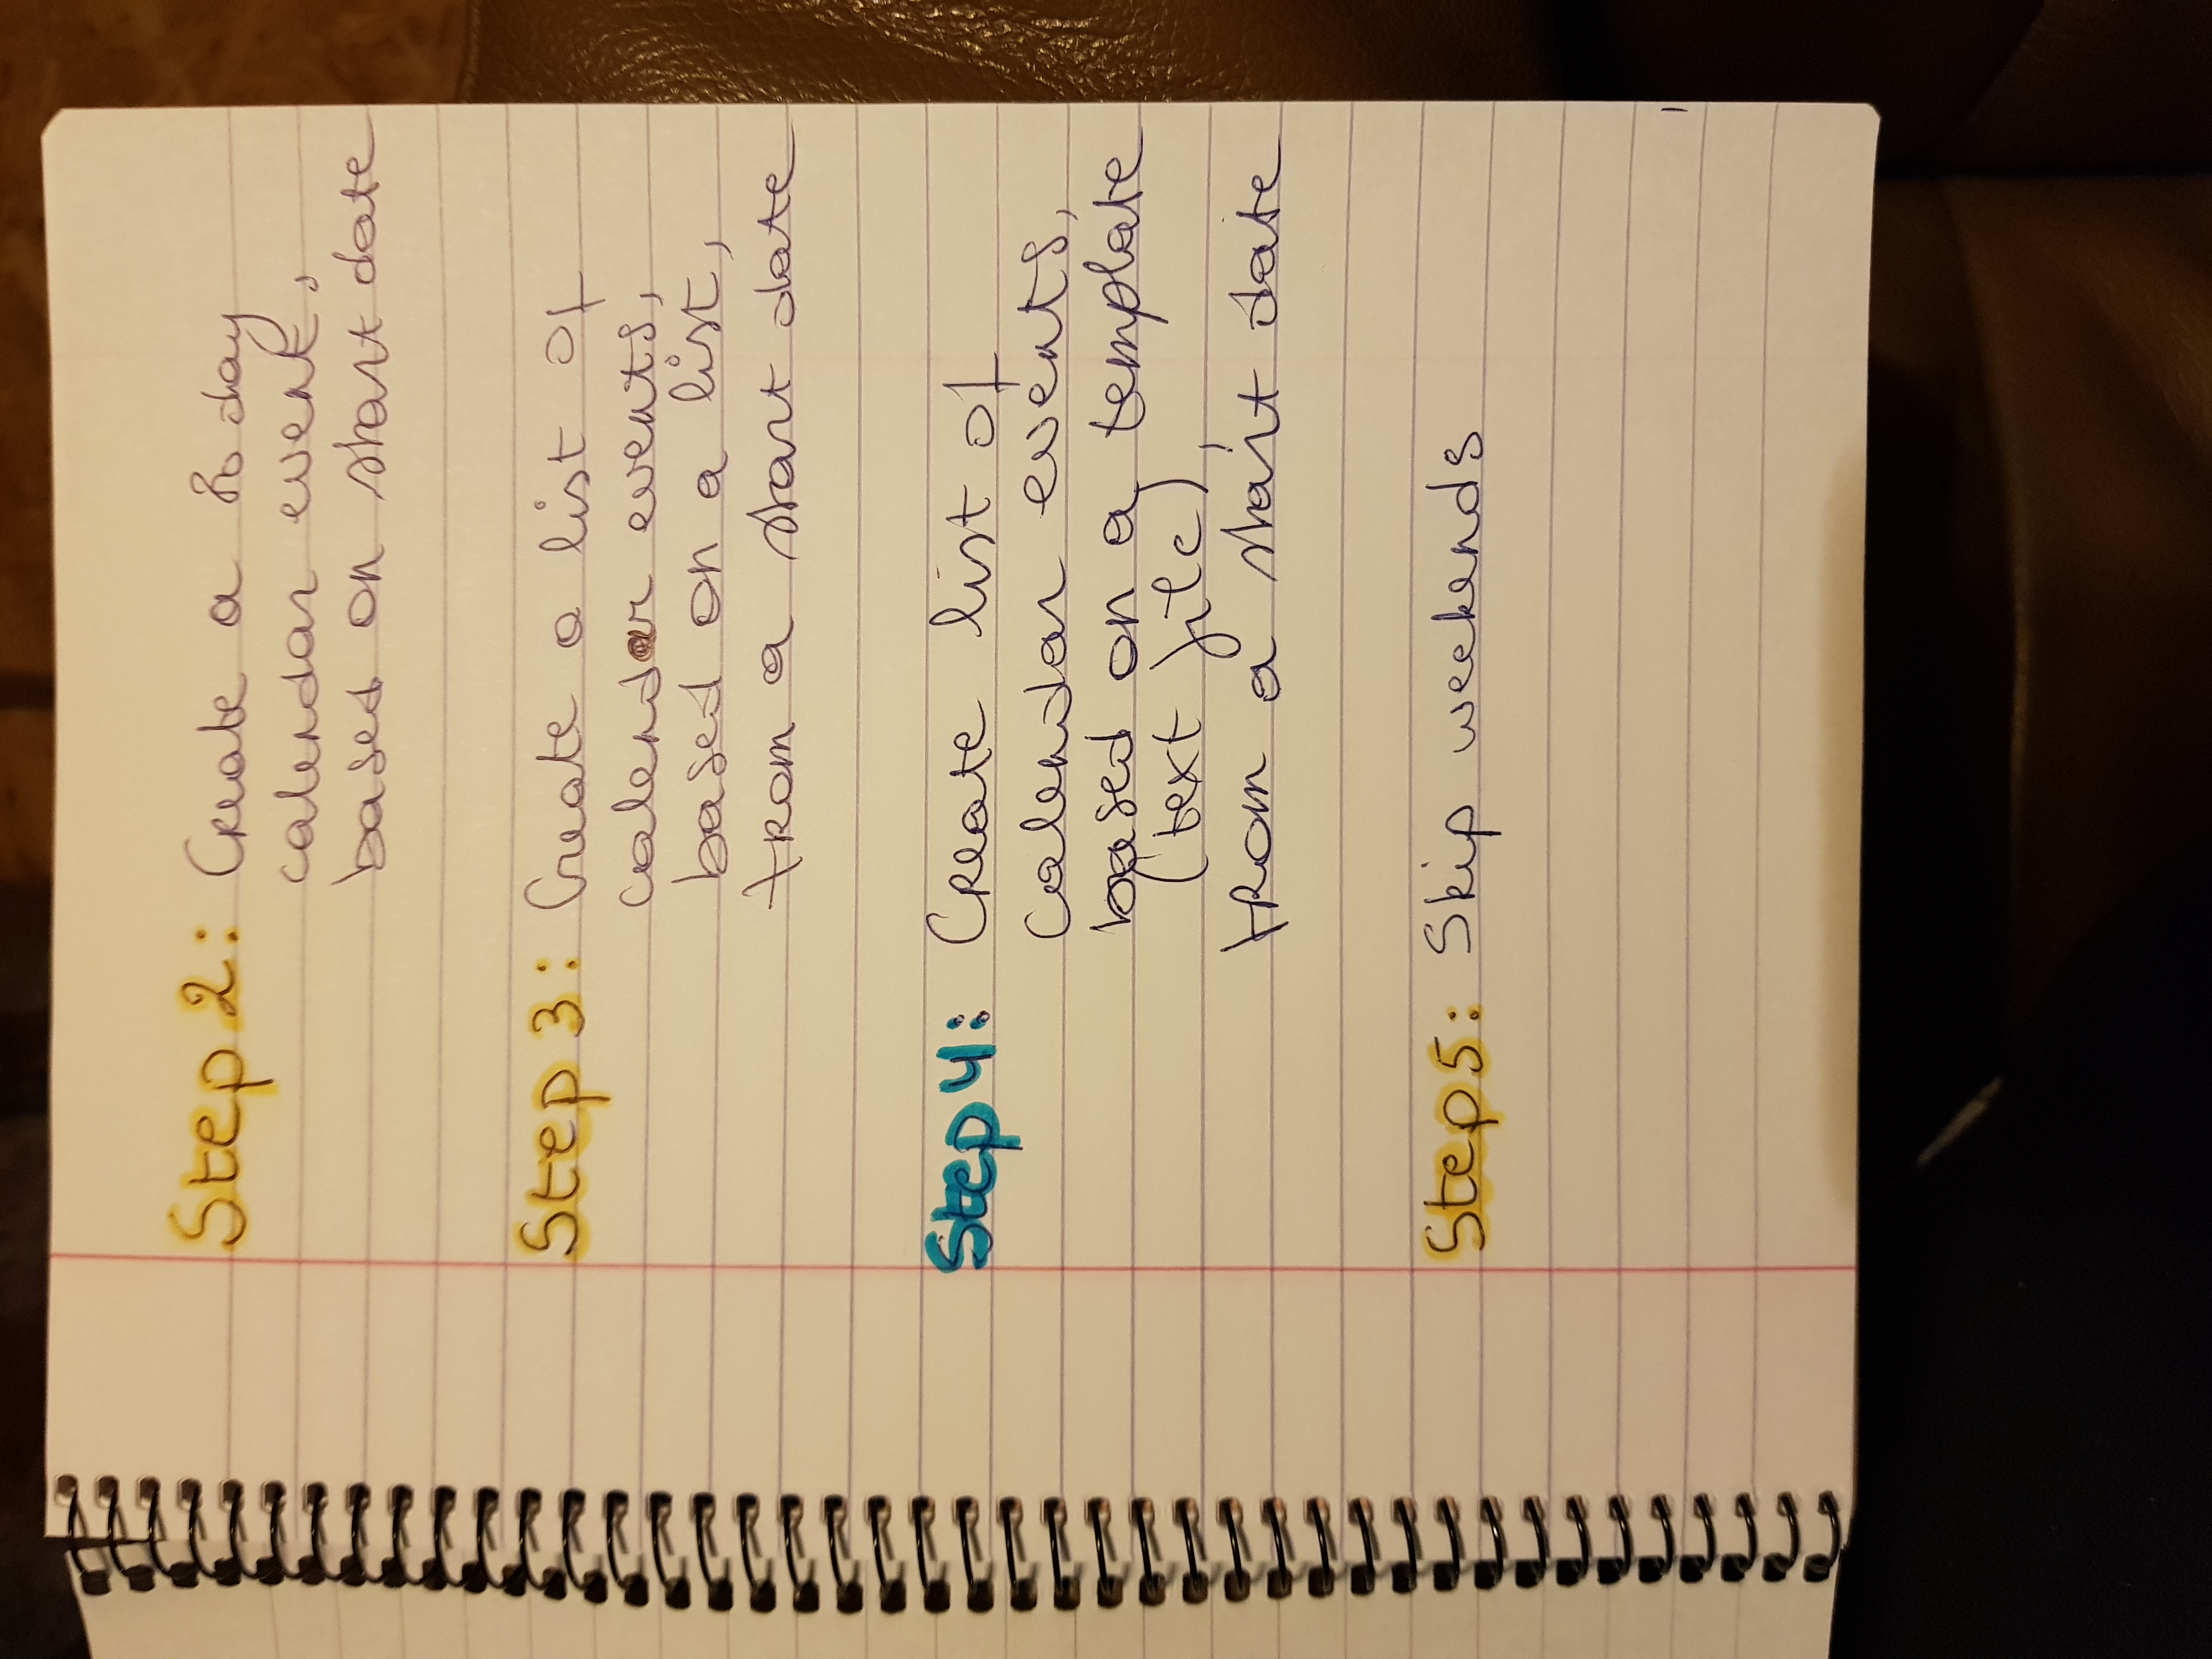 Step 2: Create a day
calendar event,
based on start date
Step 3: Create a list of
calendar events,
based on a list,
from a start date
Step 4: Create list of
calendar events,
based on a template
(text file),
from a start date
Step 5: Skip weekends